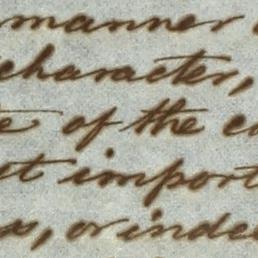 manner
character,
of the
import
, or indee